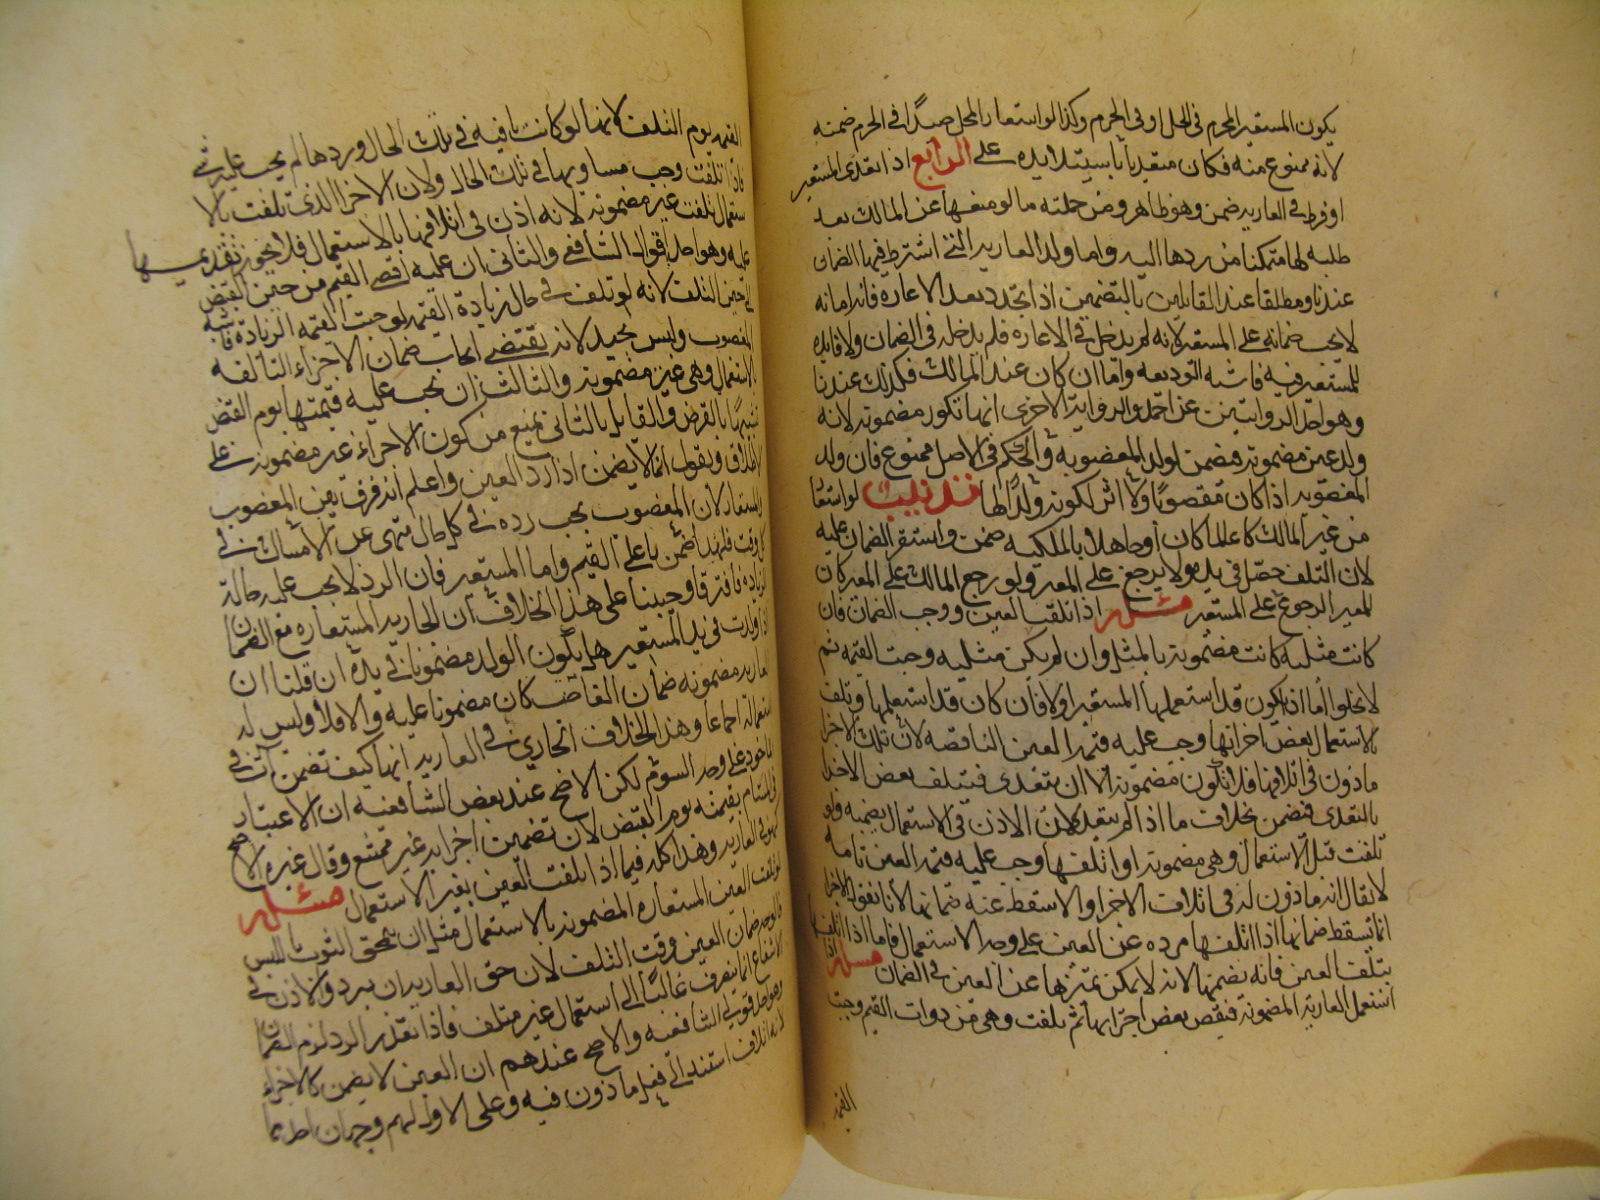 يكون المستعير المحرم في الحل او في الحرم وكذا لو استعار المحل صيدا في الحرم ضمنه
لانه ممنوع منه فكان متعديا باستيلا يده على الرابع اذا تعدى المستعير
او فرط في العارية ضمن وهو ظاهر ومن جملته ما لو منعها عن المالك بعد
طلبه لها متمكنا من ردها اليه واما ولد العارية التي اشترط فيها الضمان
عندنا ومطلقا عند القايلين بالتضمين اذا تجدد بعد الاعاره فانه امانه
لا يجب ضمانه على المستعير لانه لم يدخل في الاعاره فلم يدخل في الضمان ولا فايده
للمستعير فيه فاشبه الوديعه واما ان كان عند المالك فكذلك عندنا
وهو احدى الروايتين عن احمد والرواية الاخرى انها تكون مضمونة لانه
ولد عين مضمونة فيضمن كولد المغصوبه والحكم في الاصل ممنوع فان ولد
المغصوبة اذا كان مغصوبا ولا اثر لكونه ولدا لها تذنيب لو استعار
من غير المالك كا عالما كان او جاهلا بالملكيه ضمن واستقر الضمان عليه
لان التلف حصل في يده ولا يرجع على المعير ولو رجع المالك على المعير كان
للمعير الرجوع على المستعير مسئلة اذا تلفت العين ووجب الضمان فان
كانت مثلية كانت مضمونة بالمثل وان لم يكن مثليه وجبت القيمه ثم
لا يخلوا اما ان يكون قد استعملها المستعير او لا فان كان قد استعملها وتلف
بالاستعمال بعض اجزائها وجب عليه قيمة العين الناقصه لان تلك الاجزا
ماذون في اتلافها فلا تكون مضمونة الا ان يتعدى فتتلف بعض الاجزا
بالتعدى فيضمن بخلاف ما اذا لم يتعد لان الاذن في الاستعمال يضمنه ولو
تلفت قبل الاستعمال وهي مضمونة او اتلفها وجب عليه قيمة العين تامه
لا يقال انه ماذون له في اتلاف الاجزا والاسقط عنه ضمانها لانا نقول الاجزا
انما تسقط ضمانها اذا اتلفها مرده عن العين على وجه الاستعمال فاما اذا اتلفها
بتلف العين فانه يضمنها لانه لا يمكن تميزها عن العين في الضمان مسئلة اذا
استعمل العارية المضمونة فنقص بعض اجزايها ثم تلفت وهي من ذوات القيم وجبت
القيمة
القيمة يوم التلف لانها لو كانت باقيه في تلك الحال وردها لم يجب عليه شي
فاذا تلفت وجب مساويها في تلك الحال ولان الاجزا الذي تلفت بالا
ستعمال تلفت غير مضمونة لانه اذن في اتلافها بالاستعمال فلا يجوز تقديمها
عليه وهو احد اقوال الشافعي والثاني ان عليه اقصى القيم من حين القبض
الى حين التلف لانه لو تلفت في حال زيادة القيمة لوجبت القيمه الزيادة فاشبه
المغصوب وليس بجيد لانه يقتضي ايجاب ضمان الاجزاء التالفه
بالاستعمال وهي غير مضمونة والثالث ان يجب عليه قيمتها يوم القبض
تشبيها بالقرض والقايل بالثاني يمنع من كون الاجزاء غير مضمونة على
الاطلاق ويقول انما لا يضمن اذا رد العين واعلم انه فرق بين المغصوب
والمستعار لان المغصوب يجب رده في كل حال منهى عن الامساك في
كل وقت فلهذا ضمن باعلى القيم واما المستعير فان الرد لا يجب عليه حالة
الزياده فافترقا وبنينا على هذا الخلاف ان الجارية المستعاره مع الضمان
اذا ولدت في يد المستعير هل يكون الولد مضمونا في يده ان قلنا ان
العارية مضمونه ضمان الغاصب كان مضمونا عليه والا فلا وليس له
استعماله اجماعا وهذا الخلاف الجاري في العارية انها كيف تضمن آت في
الماخوذ على وجه السوم لكن الاصح عند بعض الشافعيه ان الاعتبار
في المستام بقيمته يوم القبض لان تضمين اجزايه غير ممتنع وقال غيره الاصح
كهو في العارية وهذا كله فيما اذا تلفت العين بغير الاستعمال مسئلة
لو تلفت العين المستعاره المضمونة بالاستعمال مثل ان ينمحق الثوب باللبس
فالوجه ضمان العين وقت التلف لان حق العارية ان يرد والاذن في
الانتفاع انما ينصرف غالبا الى استعمال غير متلف فاذا تعذر الرد لزم الضمان
وهو احد قولي الشافعيه والاصح عندهم ان العين لا يضمن كالاجزاء
لانه اتلاف استند الى فعل ماذون فيه وعلى الاول لهم وجهان احدهما